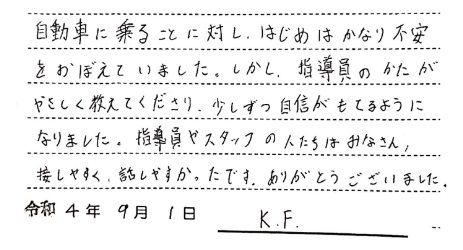 自動車に乗ることに対し、はじめはかなり不安
をおぼえていました。しかし、指導員のかたが
やさしく教えてくださり、少しずつ自信がもてるように
なりました。指導員やスタッフの人たちはみなさん、
接しやすく、話しやすかったです。ありがとうございました。
令和4年9月1日 K.F.